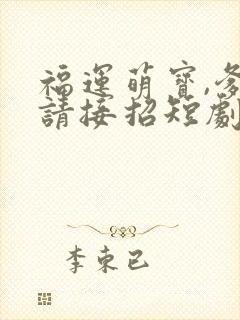 福運萌寶,爹
請接招短劇
李束已